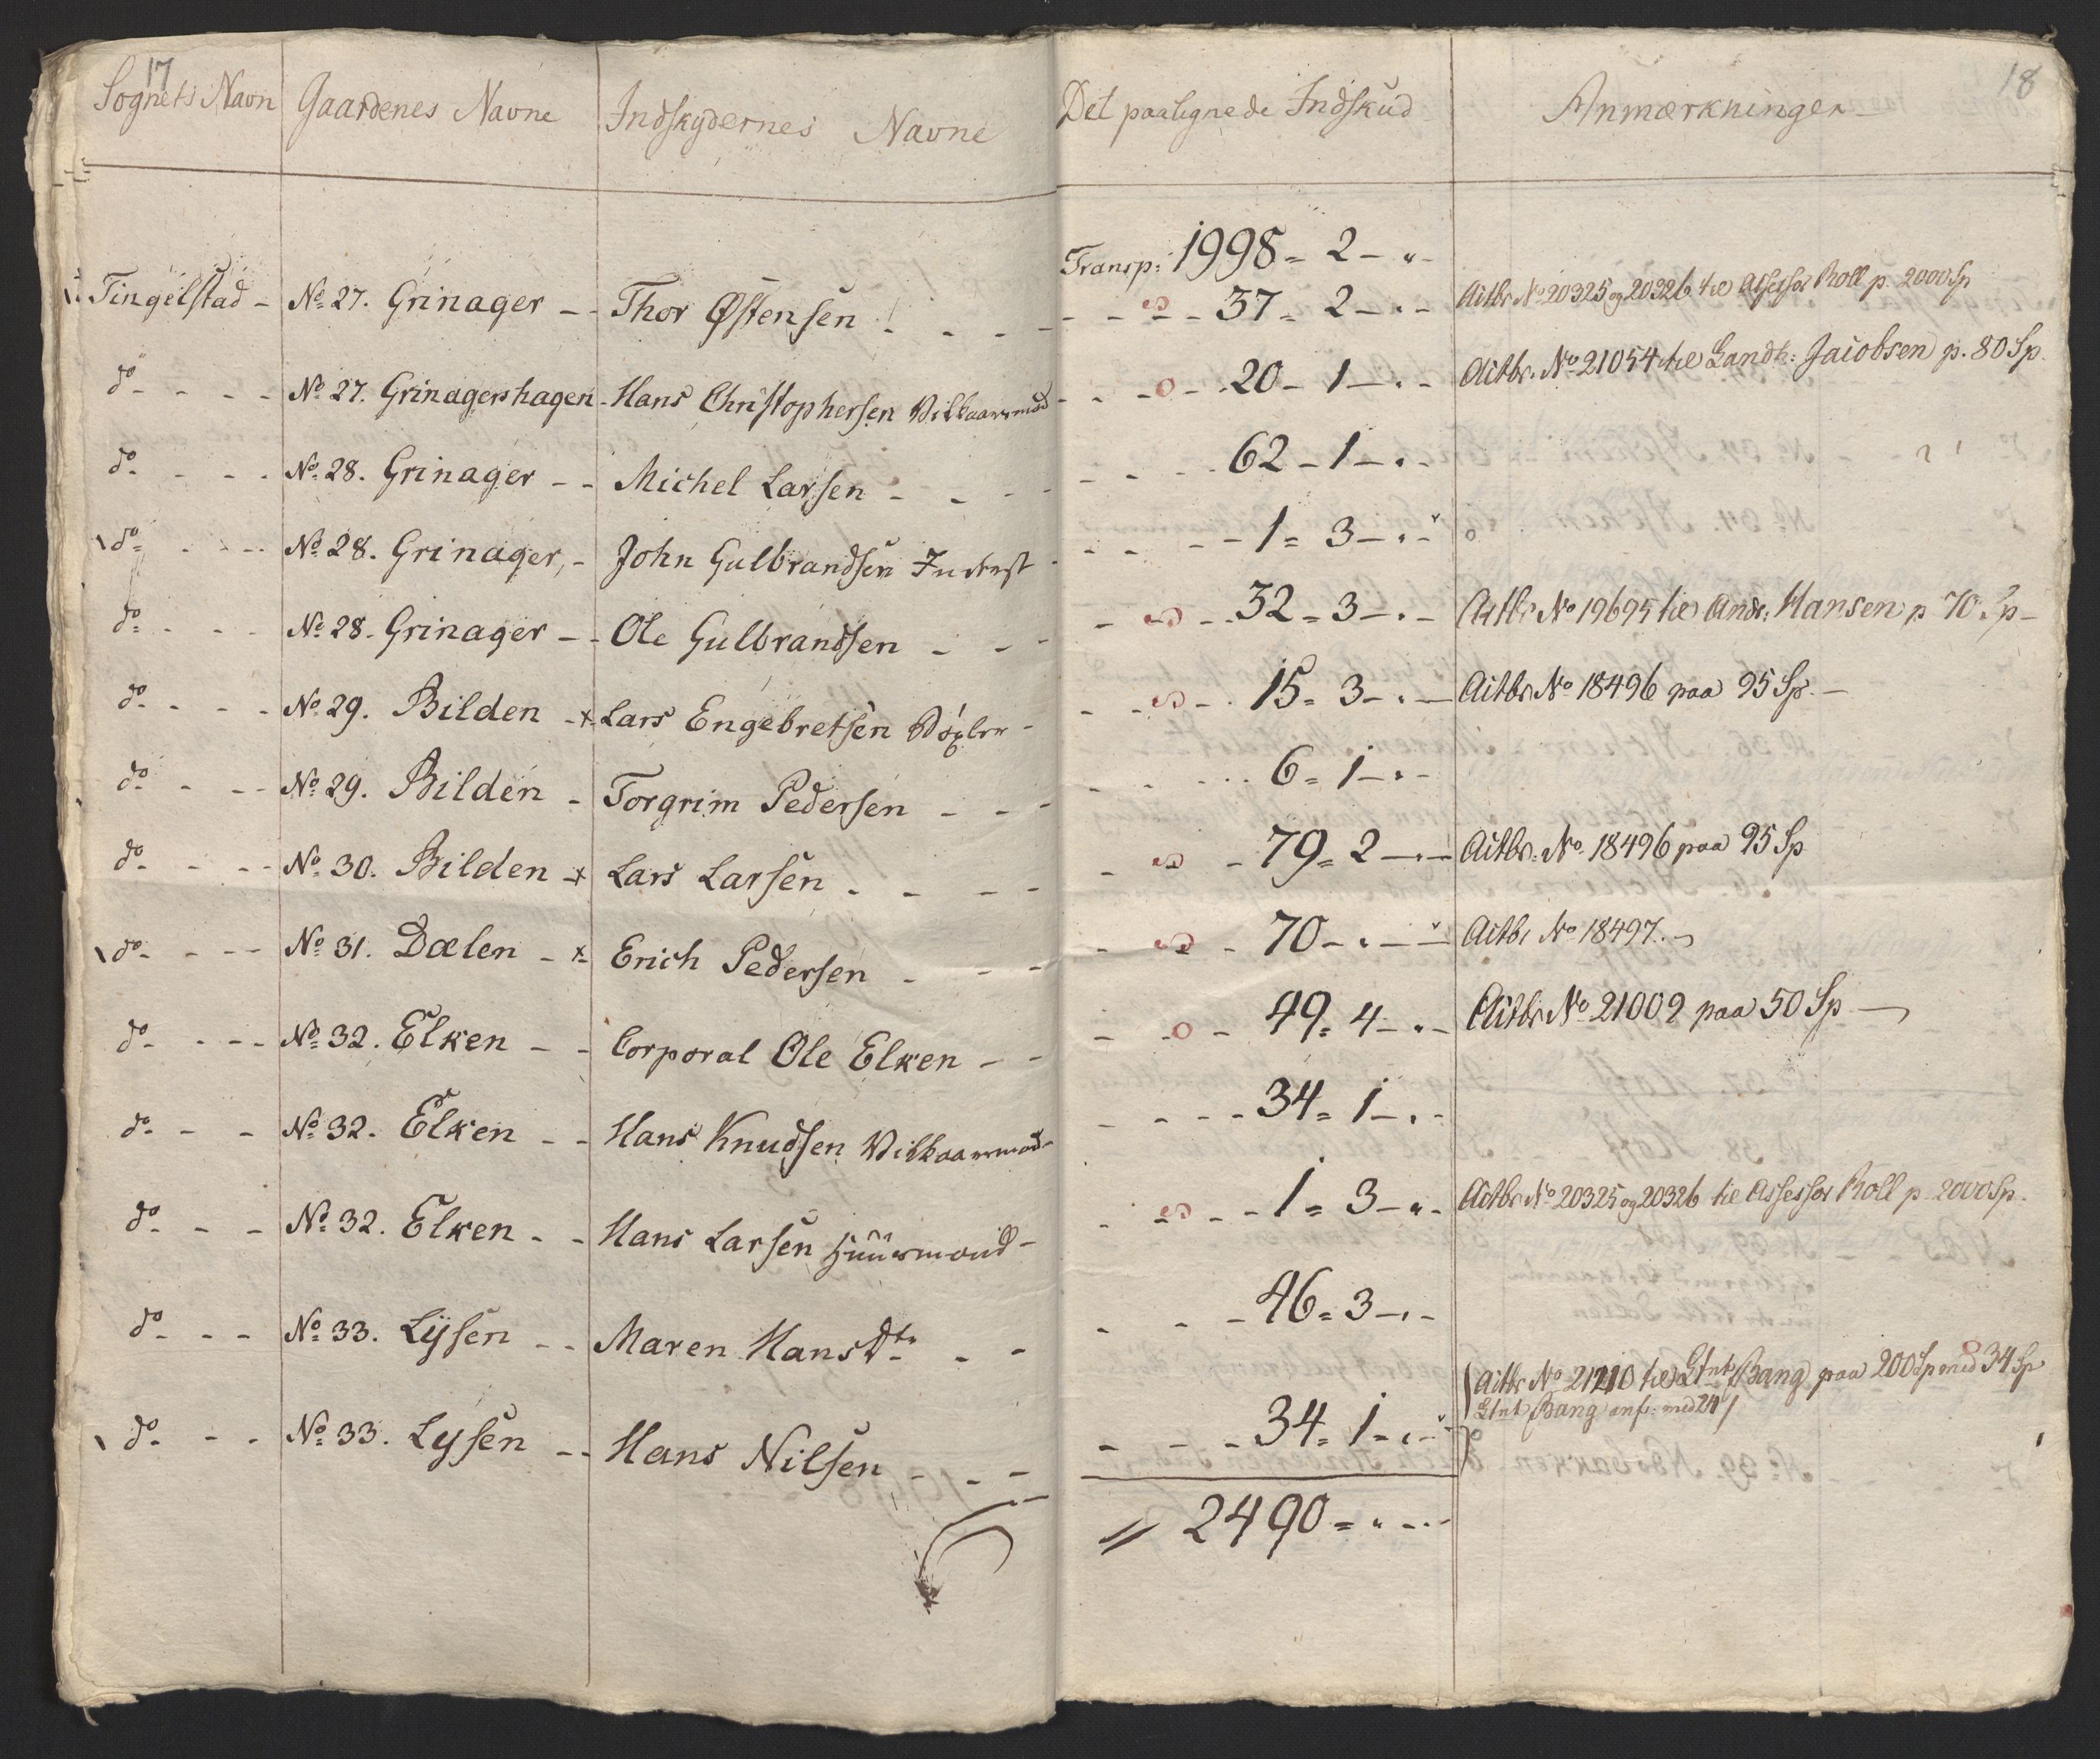 17
18
Sognets Navn Gaardenes Navne Indskydernes Navne Det paalignede Indskud Anmærkninger
Transp: 1998 = 2 -
Tingelstad - No 27. Grinager - - Thor Østensen - - - - 37 = 2 - Actbr No 20325 og 20326 til Assessor Roll p. 2000 Sp
do - - - No 27. Grinagershagen - Hans Christophersen Vilkaarsmød - - - 20 - 1 - Actbr. No 21054 til Landh: Jacobsen p. 80 Sp.
do - - - No 28. Grinager - - Michel Larsen - - - - 62 - 1 -
do - - - No 28. Grinager, - John Gulbrandsen Inderst - - - 1 = 3 -
do - - - No 28. Grinager - - Ole Gulbrandsen - - - 32 = 3 - Actbr No 19695 til Andr: Hansen p 70 Sp -
do - - - No 29. Bilden - x Lars Engebretsen - - - 15 = 3 - Actbr No 18496 paa 95 Sp. -
do - - - No 29. Bilden - Torgrim Pedersen - - - 6 = 1 -
do - - - No 30. Bilden - x Lars Larsen - - - - 79 = 2 - Actbr. No 18496 paa 95 Sp
do - - - No 31. Dælen - x Erich Pedersen - - - 70 - Actbr No 18497. -
do - - - No 32. Elken - - Corporal Ole Elken - - - 49 = 4 - Actbr No 21009 paa 50 Sp -
do - - - No 32. Elken - - Hans Knudsen Vilkaarsmød - - - 34 = 1 -
do - - - No 32. Elken - - Hans Larsen Huusmand - - - 1 = 3 - Actbr No 20325 og 20326 til Assessor Roll p 2000 Sp.
do - - - No 33. Lysen - - Maren HansDtr - - - 46 = 3 -
Actbr No 21210 til Ltnt Bang paa 200 Sp med 34 Sp
Ltnt Bang anf: med
do - - - No 33. Lysen - - Hans Nilsen - - - 34 = 1 -
2490 =